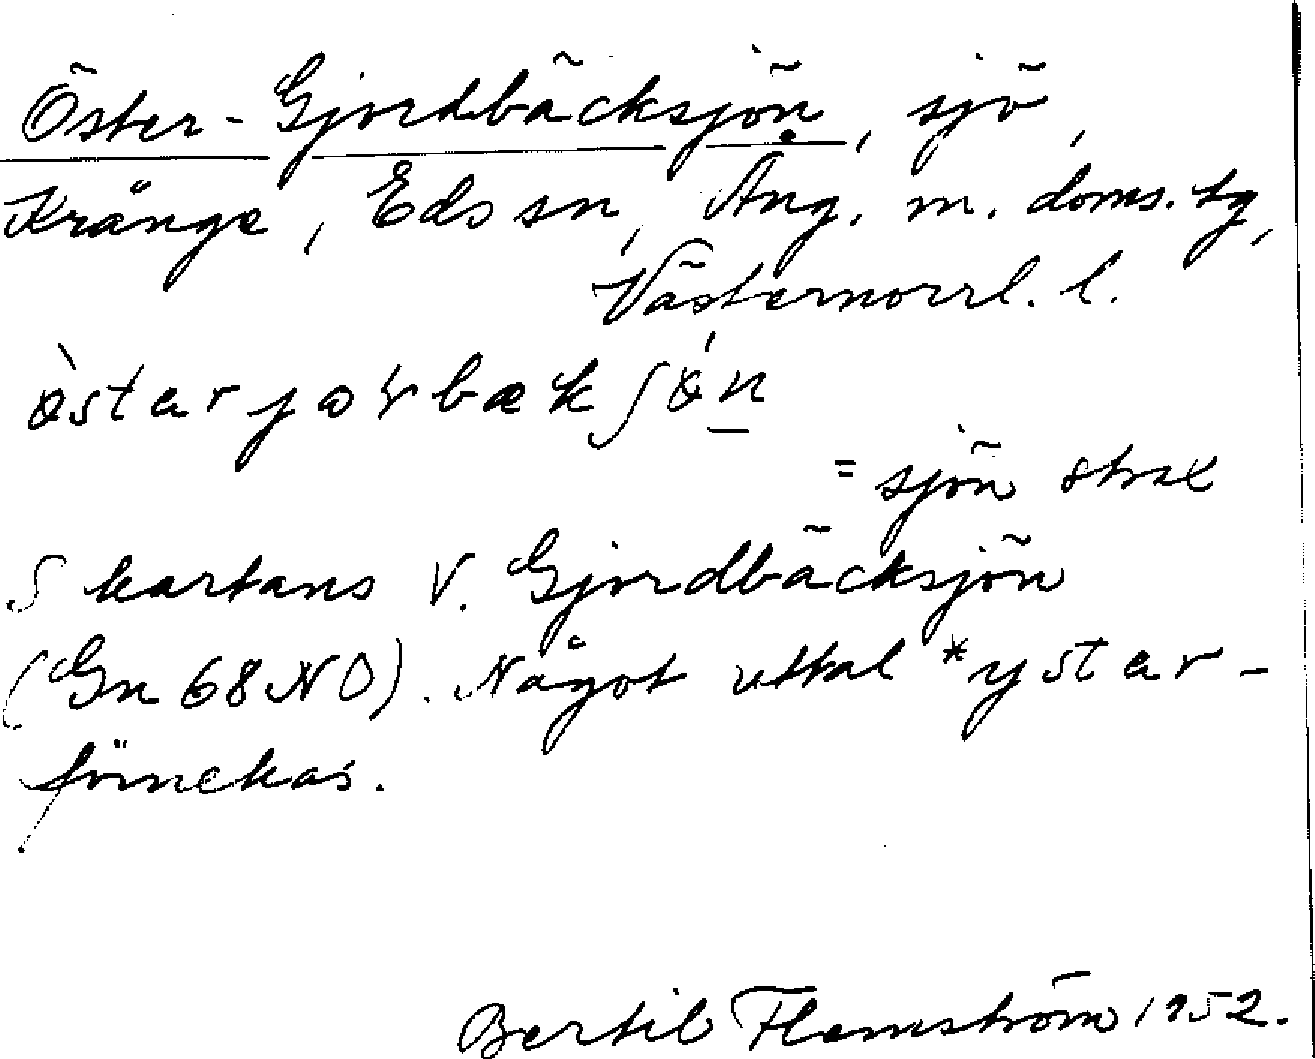 Öster-Gjordbäcksjön, sjö,
Krånge, Eds sn, Ång. m. doms. tg,
Västernorrl. l.
= sjön strax
S kartans V. Gjordbäcksjön
(Gn 68 NO). Något uttal *ystar-
förnekas.
Bertil Flemström 1952.